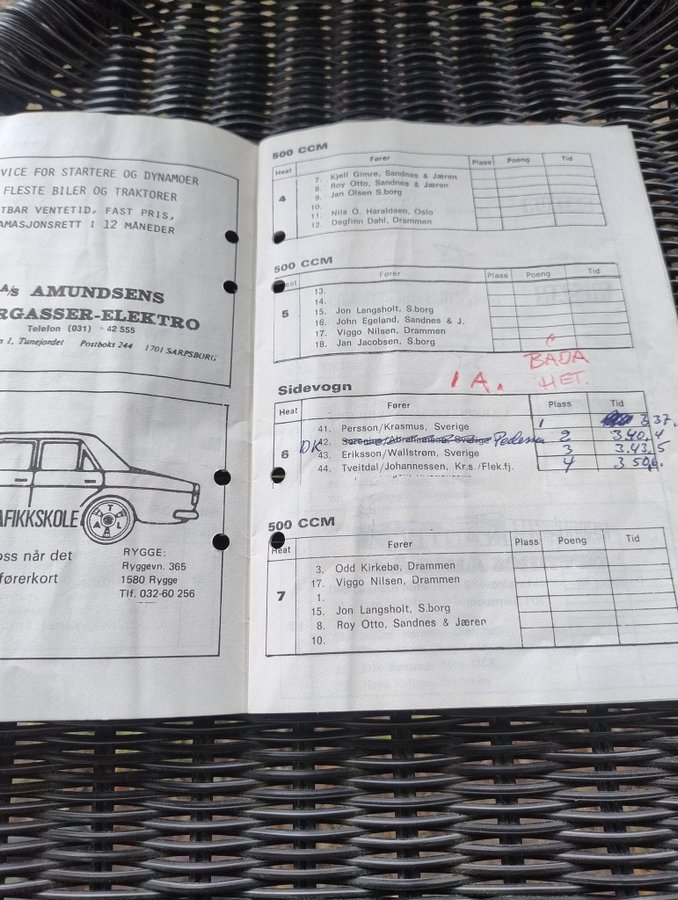 VICE FOR STARTERE OG DYNAMOER
FLESTE BILER OG TRAKTORER
TBAR VENTETID, FAST PRIS,
AMASJONSRETT I 12 MÅNEDER
A/s AMUNDSENS
RGASSER-ELEKTRO
Telefon (031) - 42 555
n 1, Tunejordet Postboks 244 1701 SARPSBORG
AFIKKSKOLE
TAL
oss når det
førerkort
RYGGE:
Ryggevn. 365
1580 Rygge
Tlf. 032-60 256
500 CCM
Heat Fører Plass Poeng Tid
4
7. Kjell Gimre, Sandnes & Jæren
8. Roy Otto, Sandnes & Jæren
9. Jan Olsen S.borg
10.
11. Nils O. Haraldsen, Oslo
12. Dagfinn Dahl, Drammen
500 CCM
Heat Fører Plass Poeng Tid
5
13.
14.
15. Jon Langsholt, S.borg
16. John Egeland, Sandnes & J.
17. Viggo Nilsen, Drammen
18. Jan Jacobsen, S.borg
1 A. BADA
HET.
Sidevogn
Heat Fører Plass Tid
6
41. Persson/Krasmus, Sverige 1 3.37.
DK 42. Pedersen 2 3.40.4
43. Eriksson/Wallstrøm, Sverige 3 3.43.5
44. Tveitdal/Johannessen, Kr.s./Flek.fj. 4 3 50
500 CCM
Heat Fører Plass Poeng Tid
7
3. Odd Kirkebø, Drammen
17. Viggo Nilsen, Drammen
1.
15. Jon Langsholt, S.borg
8. Roy Otto, Sandnes & Jæren
10.